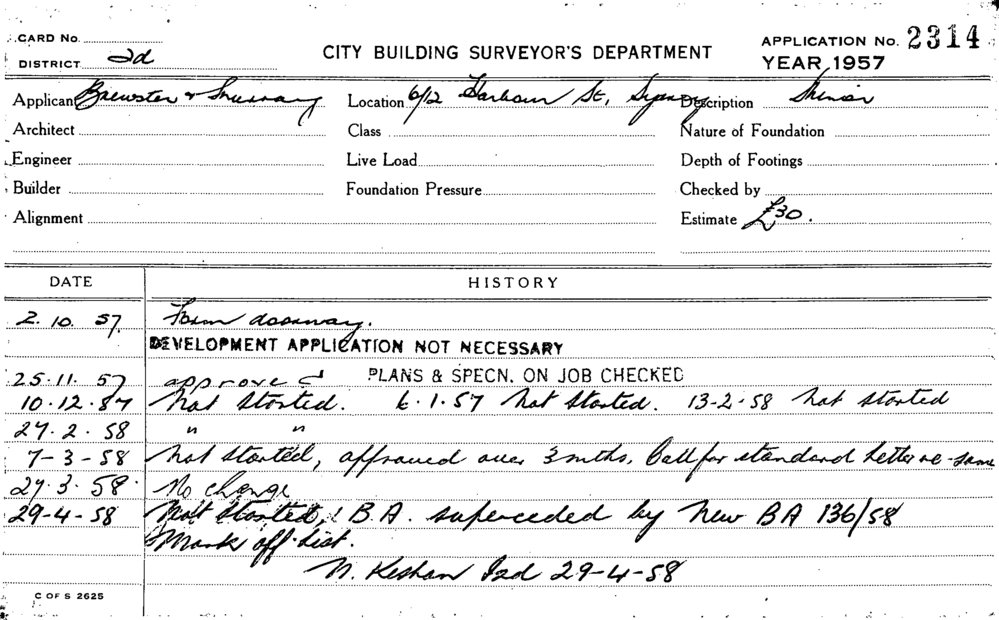 CARD No.
DISTRICT 2d
CITY BUILDING SURVEYOR'S DEPARTMENT
APPLICATION No. 2314
YEAR 1957
Applicant Brewster &
Location 6/12 Harbour St, Sydney
Description Minor
Architect
Class
Nature of Foundation
Engineer
Live Load
Depth of Footings
Builder
Foundation Pressure
Checked by
Alignment
Estimate £30.
DATE
HISTORY
2. 10. 57. Form doorway.
DEVELOPMENT APPLICATION NOT NECESSARY
25.11.57 approved PLANS & SPECN. ON JOB CHECKED
10.12.57 Not started. 6.1.57 Not started. 13-2-58 Not started
27.2.58 " "
7-3-58 Not started, approved over 3 mths. Call for standard letter re same
27.3.58 No change
29-4-58 Not started, B.A. superceded by New BA 136/58
Mark off list.
N. 29-4-58
C OF S 2625